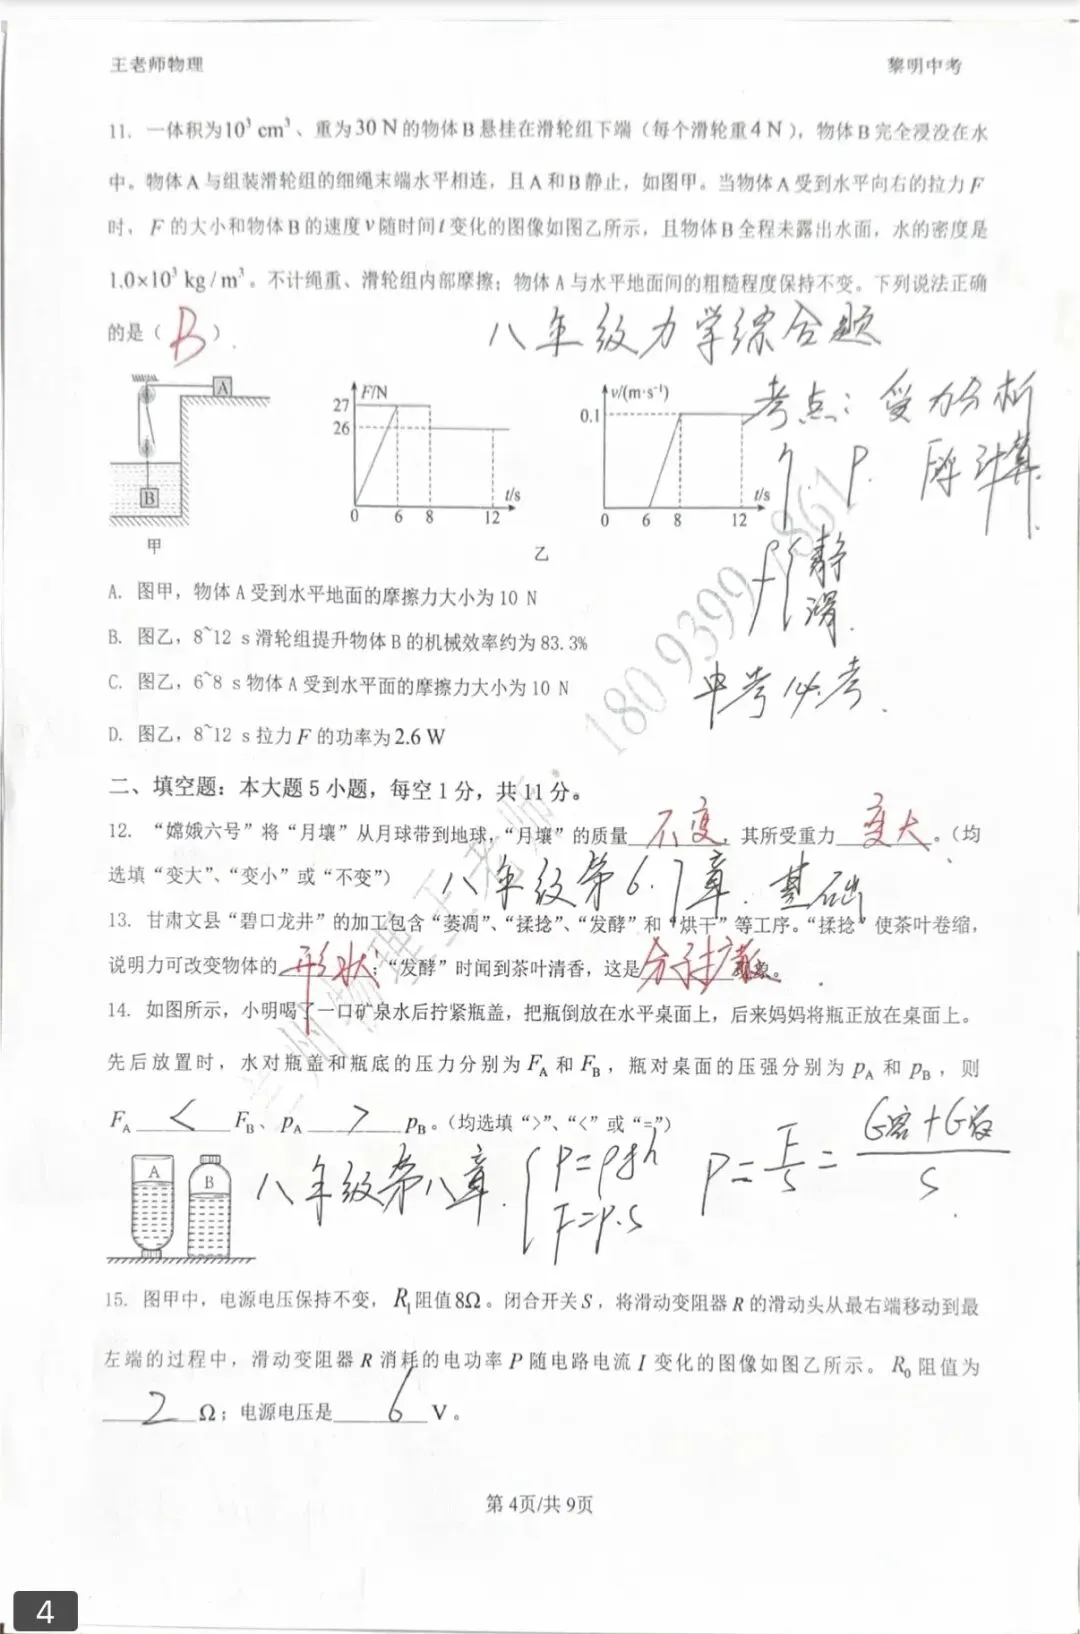 王老师物理
黎明中考
11. 一体积为10³ cm³、重为30 N的物体B悬挂在滑轮组下端（每个滑轮重4 N），物体B完全浸没在水
中。物体A与组装滑轮组的细绳末端水平相连，且A和B静止，如图甲。当物体A受到水平向右的拉力F
时，F的大小和物体B的速度v随时间t变化的图像如图乙所示，且物体B全程未露出水面，水的密度是
1.0×10³ kg/m³。不计绳重、滑轮组内部摩擦；物体A与水平地面间的粗糙程度保持不变。下列说法正确
的是（ B ）.
八年级力学综合题
A
B
甲
F/N
27
26
0 6 8 12
t/s
乙
v/(m·s⁻¹)
0.1
0 6 8 12
t/s
考点：受力分析
η P. F浮计算.
f{静
滑.
中考必考.
A. 图甲，物体A受到水平地面的摩擦力大小为10 N
B. 图乙，8~12 s滑轮组提升物体B的机械效率约为83.3%
C. 图乙，6~8 s物体A受到水平面的摩擦力大小为10 N
D. 图乙，8~12 s拉力F的功率为2.6 W
二、填空题：本大题5小题，每空1分，共11分。
12. “嫦娥六号”将“月壤”从月球带到地球，“月壤”的质量 不变，其所受重力 变大。（均
选填“变大”、“变小”或“不变”）
八年级第6.7章. 基础
13. 甘肃文县“碧口龙井”的加工包含“萎凋”、“揉捻”、“发酵”和“烘干”等工序。“揉捻”使茶叶卷缩，
说明力可改变物体的 形状；“发酵”时闻到茶叶清香，这是 分子扩散 现象。
14. 如图所示，小明喝了一口矿泉水后拧紧瓶盖，把瓶倒放在水平桌面上，后来妈妈将瓶正放在桌面上。
先后放置时，水对瓶盖和瓶底的压力分别为F_A和F_B，瓶对桌面的压强分别为p_A和p_B，则
F_A < F_B、p_A > p_B。（均选填“>”、“<”或“=”）
A
B
八年级第八章.
{P=ρgh
F=P·S
P=F/S=(G容+G液)/S.
15. 图甲中，电源电压保持不变，R₁阻值8Ω。闭合开关S，将滑动变阻器R的滑动头从最右端移动到最
左端的过程中，滑动变阻器R消耗的电功率P随电路电流I变化的图像如图乙所示。R₀阻值为
2 Ω；电源电压是 6 V。
兰州物理王老师：180 9399 7861
第4页/共9页
4